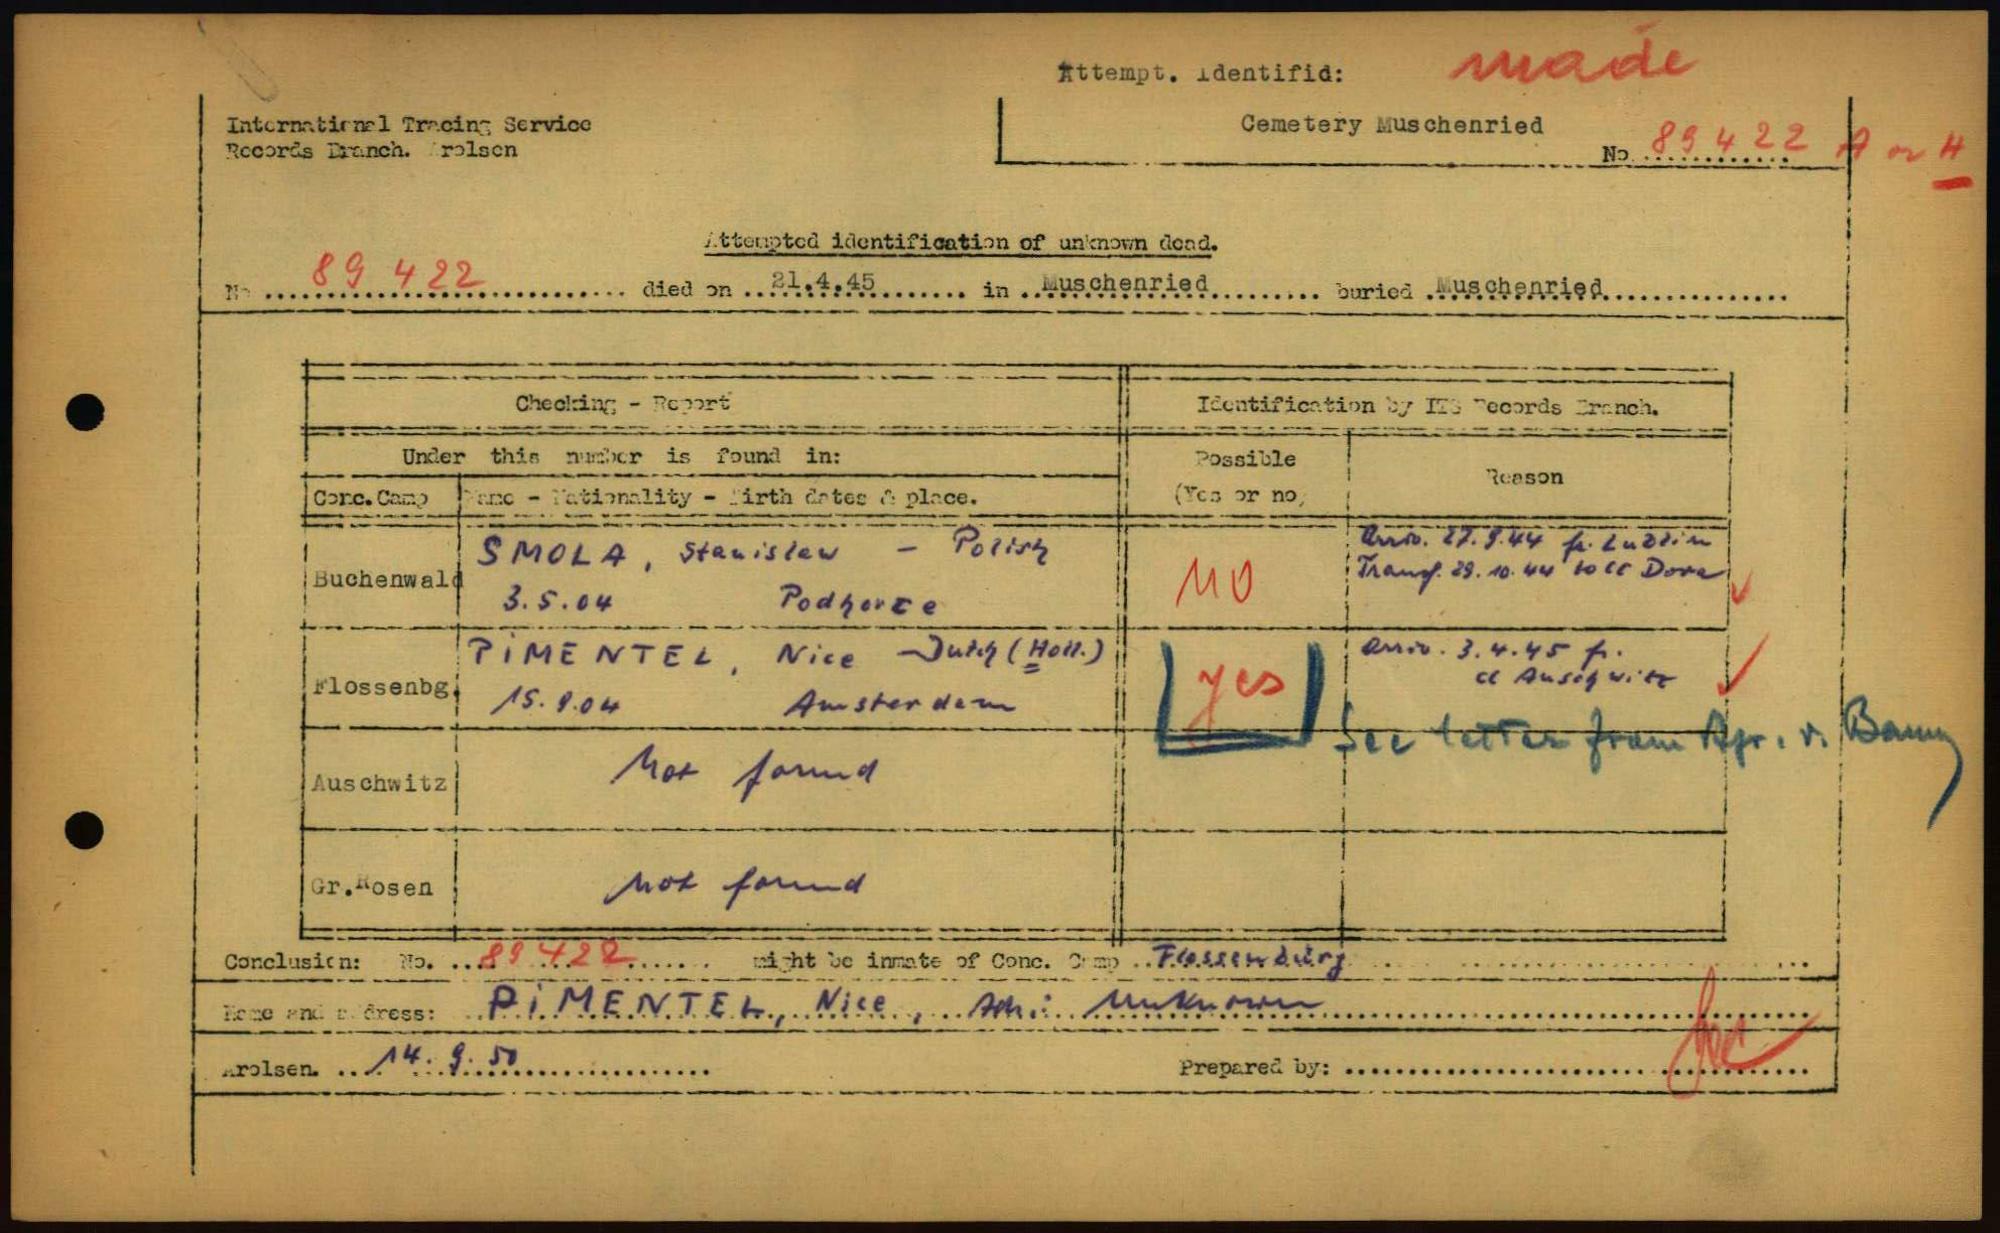 Attempt. Identifid: made
International Tracing Service
Records Branch. Arolsen
Cemetery Muschenried
No. 89422 A or H
Attempted identification of unknown dead.
No 89 422 died on 21.4.45 in Muschenried buried Muschenried
Checking - Report
Identification by ITS Records Branch.
Under this number is found in:
Possible
(Yes or no)
Reason
Conc.Camp
Name - Nationality - Birth dates & place.
Buchenwald
SMOLA, Stanislaw - Polish
3.5.04 Podhorce
NO
Arriv. 27.9.44 fr. Lublin
Transf. 29.10.44 to CC Dora
Flossenbg.
PIMENTEL, Nice - Dutch (Holl.)
15.9.04 Amsterdam
yes
Arriv. 3.4.45 fr.
cc Auschwitz
See letter from
Auschwitz
Not found
Gr.Rosen
Not found
Conclusion: No. 89422 might be inmate of Conc. Camp Flossenbürg
Name and address: PIMENTEL, Nice, Adr.: Unknown
Arolsen. 14.9.50
Prepared by: